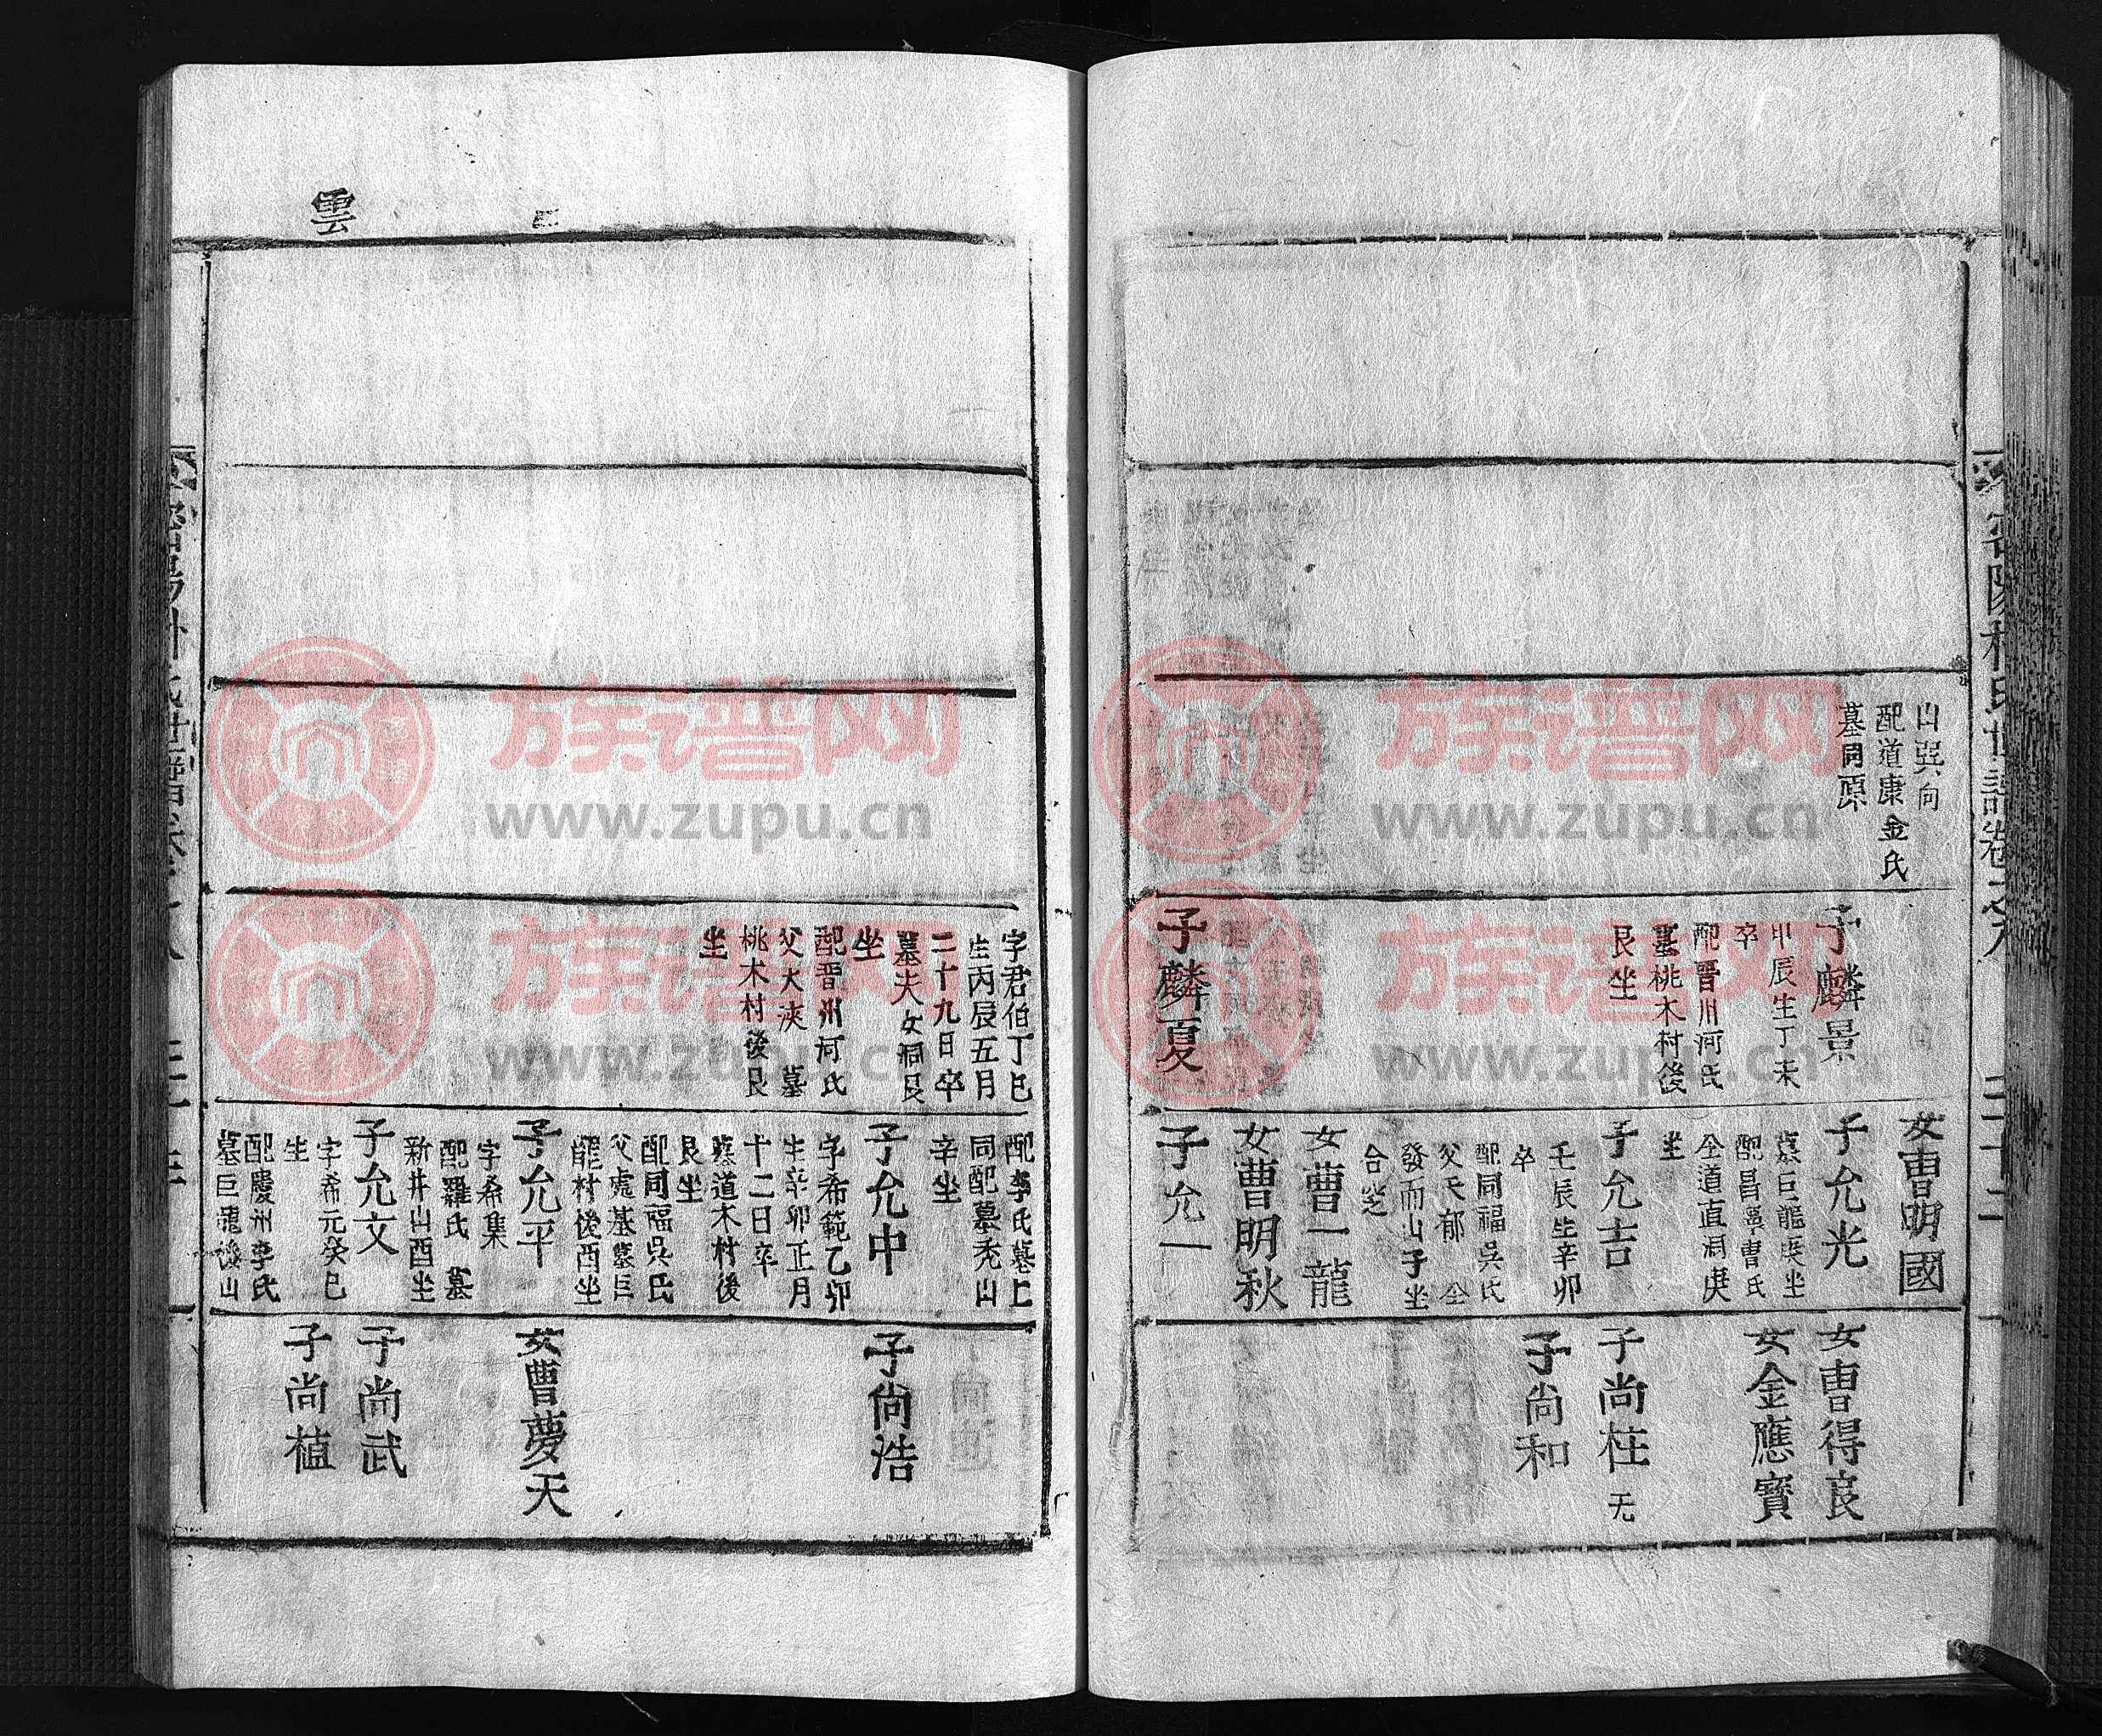 密陽朴氏世譜卷之八
三十二
山巽向
配道康金氏
墓同原
子麟景
甲辰生丁未
卒
配晋州河氏
墓桃木村後
艮坐
子麟夏
女曺明國
子允光
墓巨龍庚坐
配昌寧曺氏
仝道直洞庚
坐
子允吉
壬辰生辛卯
卒
配同福吳氏
父天郁 仝
發而山子坐
合窆
女曺一龍
女曺明秋
子允一
女曺得良
女金應寶
子尚柱 无
子尚和
雲
字君伯丁巳
生丙辰五月
二十九日卒
墓夫女洞艮
坐
配晋州河氏
父大浹 墓
桃木村後艮
坐
配李氏墓上
同配墓禿山
辛坐
子允中
字希範乙卯
生辛卯正月
十二日卒
墓道木村後
艮坐
配同福吳氏
父處基墓巨
龍村後酉坐
子允平
字希集
配羅氏 墓
新井山酉坐
子允文
字希元癸巳
生
配慶州李氏
墓巨龍後山
子尚浩
女曺夢天
子尚武
子尚植
密陽朴氏世譜卷之八
族谱网
www.zupu.cn
族谱网
www.zupu.cn
族谱网
www.zupu.cn
族谱网
www.zupu.cn